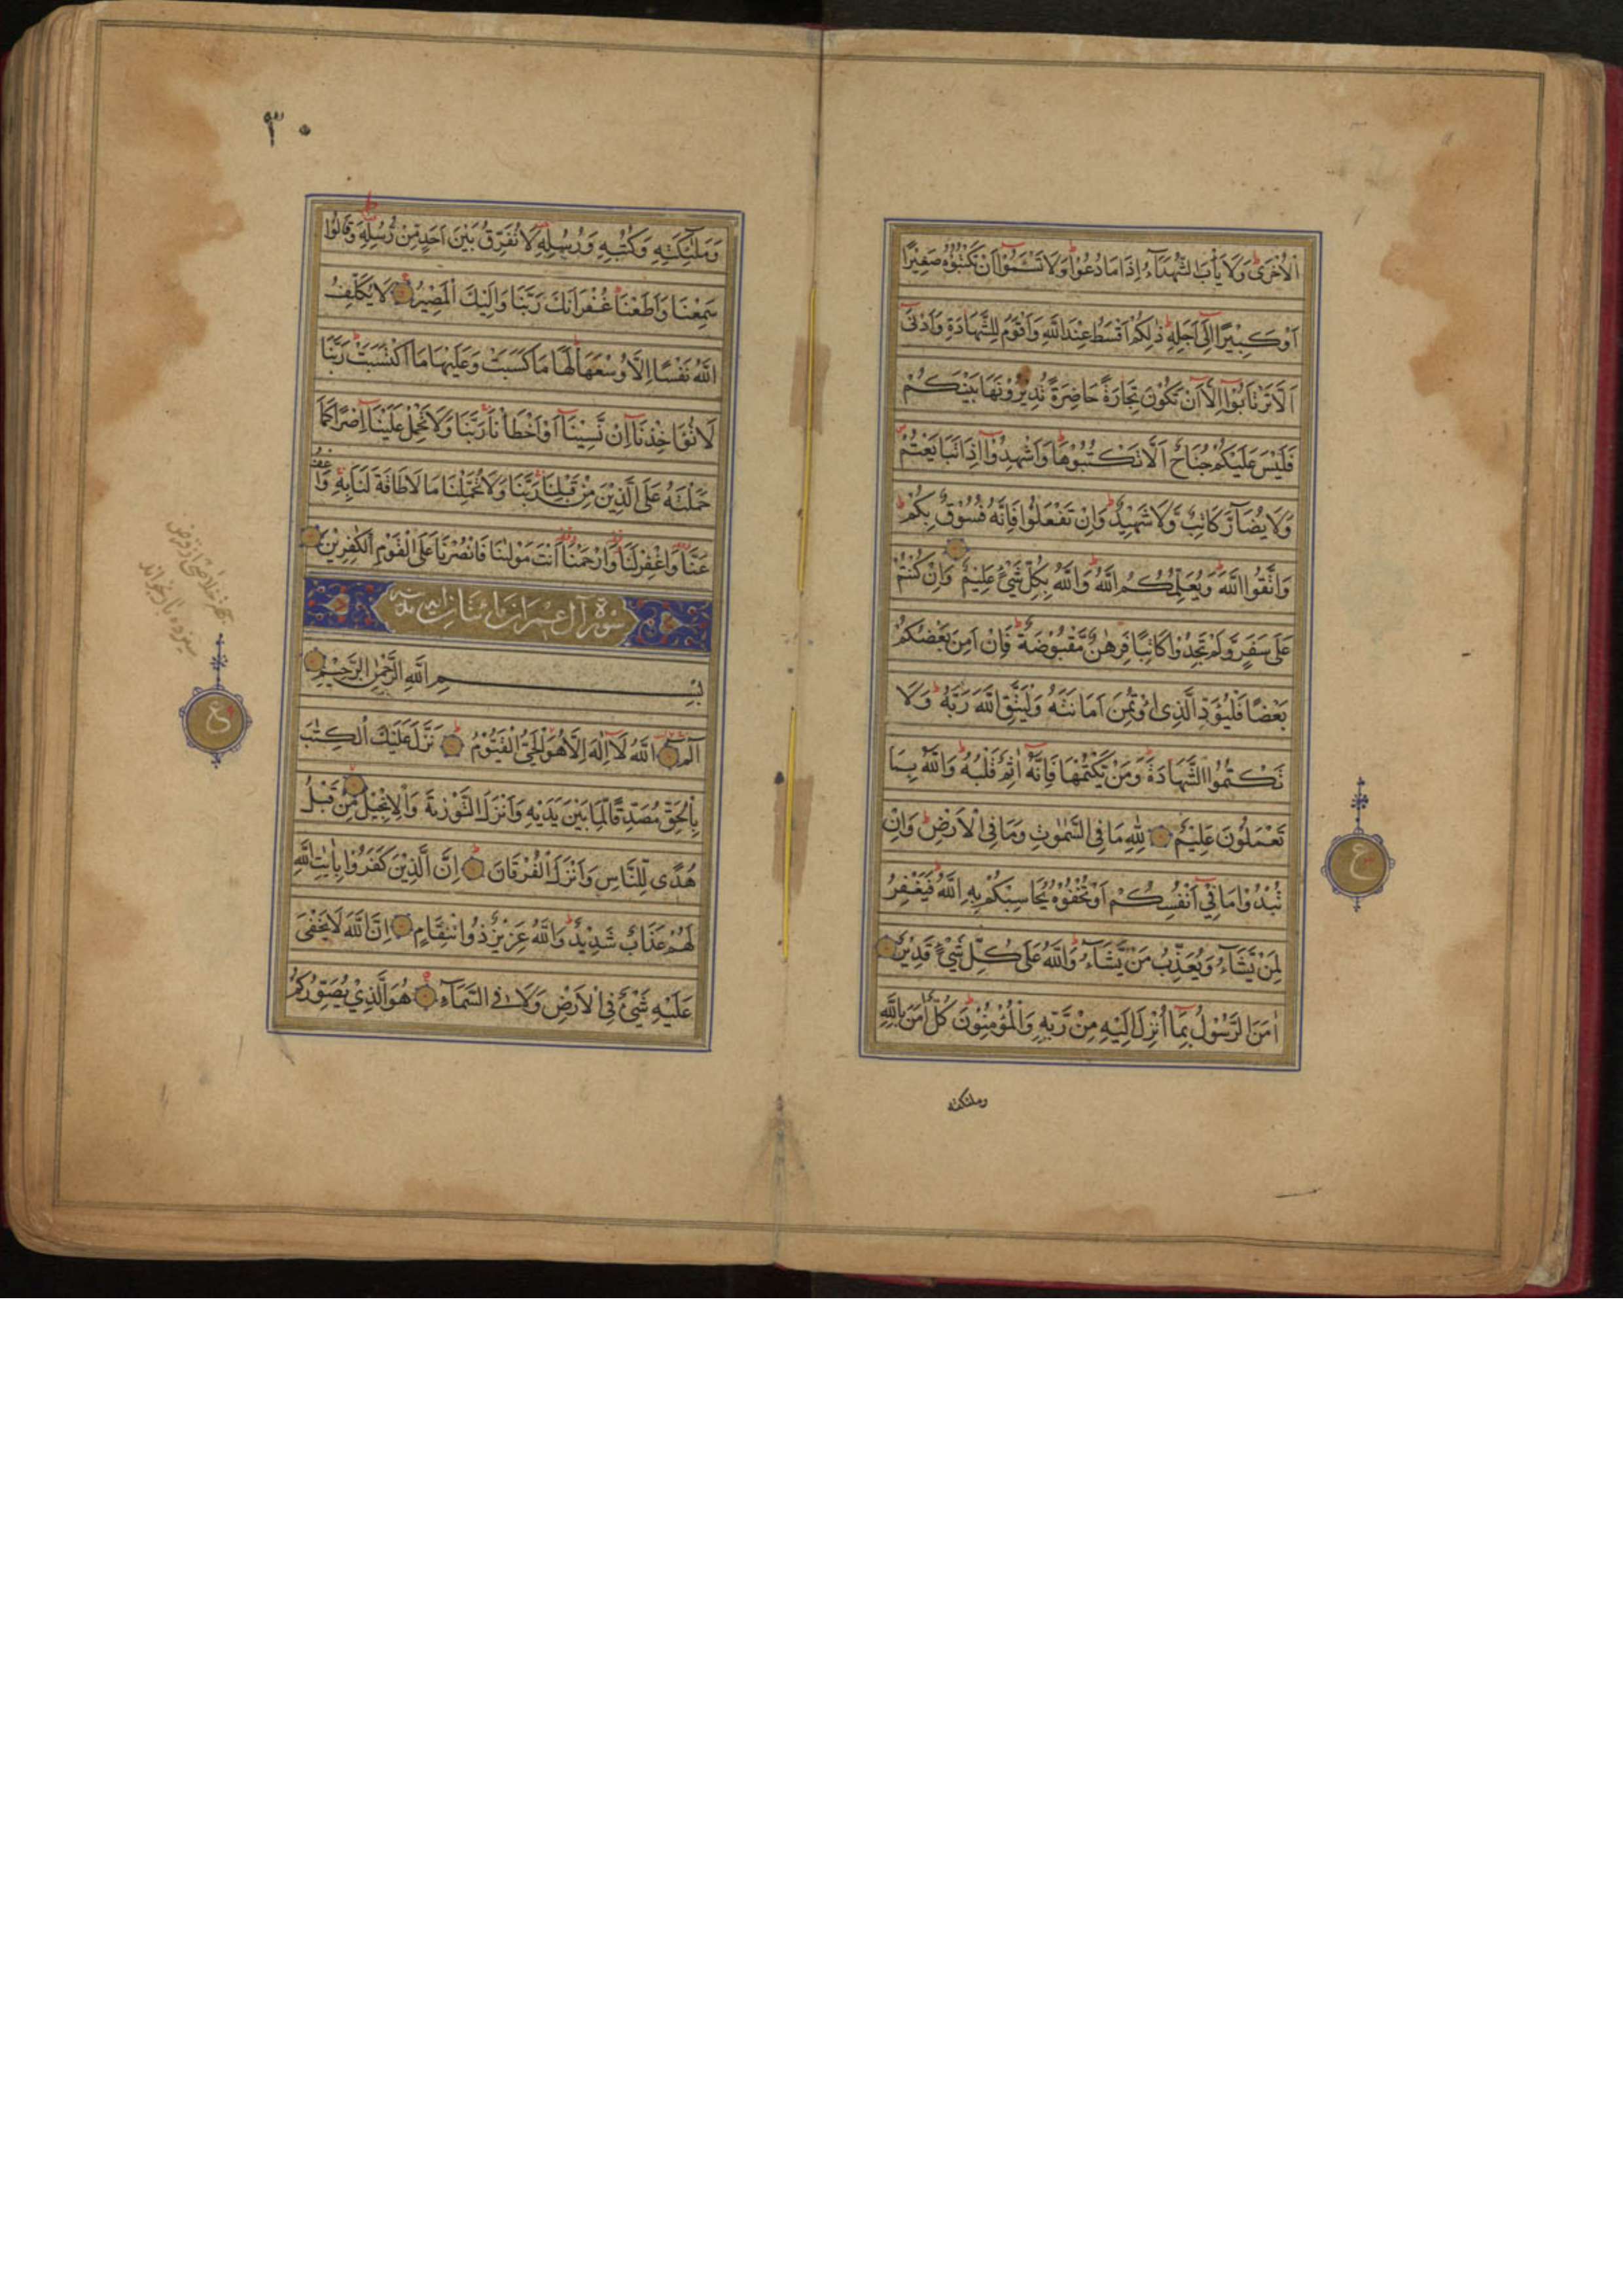 الْاُخْرٰى وَلَا يَاْبَ الشُّهَدَآءُ اِذَا مَا دُعُوْا وَلَا تَسْـَٔمُوْٓا اَنْ تَكْتُبُوْهُ صَغِيْرًا
اَوْ كَبِيْرًا اِلٰٓى اَجَلِهٖ ذٰلِكُمْ اَقْسَطُ عِنْدَ اللّٰهِ وَاَقْوَمُ لِلشَّهَادَةِ وَاَدْنٰٓى
اَلَّا تَرْتَابُوْٓا اِلَّآ اَنْ تَكُوْنَ تِجَارَةً حَاضِرَةً تُدِيْرُوْنَهَا بَيْنَكُمْ
فَلَيْسَ عَلَيْكُمْ جُنَاحٌ اَلَّا تَكْتُبُوْهَا وَاَشْهِدُوْٓا اِذَا تَبَايَعْتُمْ
وَلَا يُضَآرَّ كَاتِبٌ وَّلَا شَهِيْدٌ وَاِنْ تَفْعَلُوْا فَاِنَّهٗ فُسُوْقٌ بِكُمْ
وَاتَّقُوا اللّٰهَ وَيُعَلِّمُكُمُ اللّٰهُ وَاللّٰهُ بِكُلِّ شَيْءٍ عَلِيْمٌ وَاِنْ كُنْتُمْ
عَلٰى سَفَرٍ وَّلَمْ تَجِدُوْا كَاتِبًا فَرِهٰنٌ مَّقْبُوْضَةٌ فَاِنْ اَمِنَ بَعْضُكُمْ
بَعْضًا فَلْيُؤَدِّ الَّذِى اؤْتُمِنَ اَمَانَتَهٗ وَلْيَتَّقِ اللّٰهَ رَبَّهٗ وَلَا
تَكْتُمُوا الشَّهَادَةَ وَمَنْ يَّكْتُمْهَا فَاِنَّهٗٓ اٰثِمٌ قَلْبُهٗ وَاللّٰهُ بِمَا
تَعْمَلُوْنَ عَلِيْمٌ لِلّٰهِ مَا فِى السَّمٰوٰتِ وَمَا فِى الْاَرْضِ وَاِنْ
تُبْدُوْا مَا فِيْٓ اَنْفُسِكُمْ اَوْ تُخْفُوْهُ يُحَاسِبْكُمْ بِهِ اللّٰهُ فَيَغْفِرُ
لِمَنْ يَّشَآءُ وَيُعَذِّبُ مَنْ يَّشَآءُ وَاللّٰهُ عَلٰى كُلِّ شَيْءٍ قَدِيْرٌ
اٰمَنَ الرَّسُوْلُ بِمَآ اُنْزِلَ اِلَيْهِ مِنْ رَّبِّهٖ وَالْمُؤْمِنُوْنَ كُلٌّ اٰمَنَ بِاللّٰهِ
وملئكته
ع
٣٠
وَمَلٰٓئِكَتِهٖ وَكُتُبِهٖ وَرُسُلِهٖ لَا نُفَرِّقُ بَيْنَ اَحَدٍ مِّنْ رُّسُلِهٖ وَقَالُوْا
سَمِعْنَا وَاَطَعْنَا غُفْرَانَكَ رَبَّنَا وَاِلَيْكَ الْمَصِيْرُ لَا يُكَلِّفُ
اللّٰهُ نَفْسًا اِلَّا وُسْعَهَا لَهَا مَا كَسَبَتْ وَعَلَيْهَا مَا اكْتَسَبَتْ رَبَّنَا
لَا تُؤَاخِذْنَآ اِنْ نَّسِيْنَآ اَوْ اَخْطَاْنَا رَبَّنَا وَلَا تَحْمِلْ عَلَيْنَآ اِصْرًا كَمَا
حَمَلْتَهٗ عَلَى الَّذِيْنَ مِنْ قَبْلِنَا رَبَّنَا وَلَا تُحَمِّلْنَا مَا لَا طَاقَةَ لَنَا بِهٖ وَاعْفُ
عَنَّا وَاغْفِرْ لَنَا وَارْحَمْنَا اَنْتَ مَوْلٰىنَا فَانْصُرْنَا عَلَى الْقَوْمِ الْكٰفِرِيْنَ
سورة آل عمران مائتان آية مدنية
بِسْمِ اللّٰهِ الرَّحْمٰنِ الرَّحِيْمِ
الٓمٓ اللّٰهُ لَآ اِلٰهَ اِلَّا هُوَ الْحَيُّ الْقَيُّوْمُ نَزَّلَ عَلَيْكَ الْكِتٰبَ
بِالْحَقِّ مُصَدِّقًا لِّمَا بَيْنَ يَدَيْهِ وَاَنْزَلَ التَّوْرٰىةَ وَالْاِنْجِيْلَ مِنْ قَبْلُ
هُدًى لِّلنَّاسِ وَاَنْزَلَ الْفُرْقَانَ اِنَّ الَّذِيْنَ كَفَرُوْا بِاٰيٰتِ اللّٰهِ
لَهُمْ عَذَابٌ شَدِيْدٌ وَاللّٰهُ عَزِيْزٌ ذُو انْتِقَامٍ اِنَّ اللّٰهَ لَا يَخْفٰى
عَلَيْهِ شَيْءٌ فِى الْاَرْضِ وَلَا فِى السَّمَآءِ هُوَ الَّذِيْ يُصَوِّرُكُمْ
ع